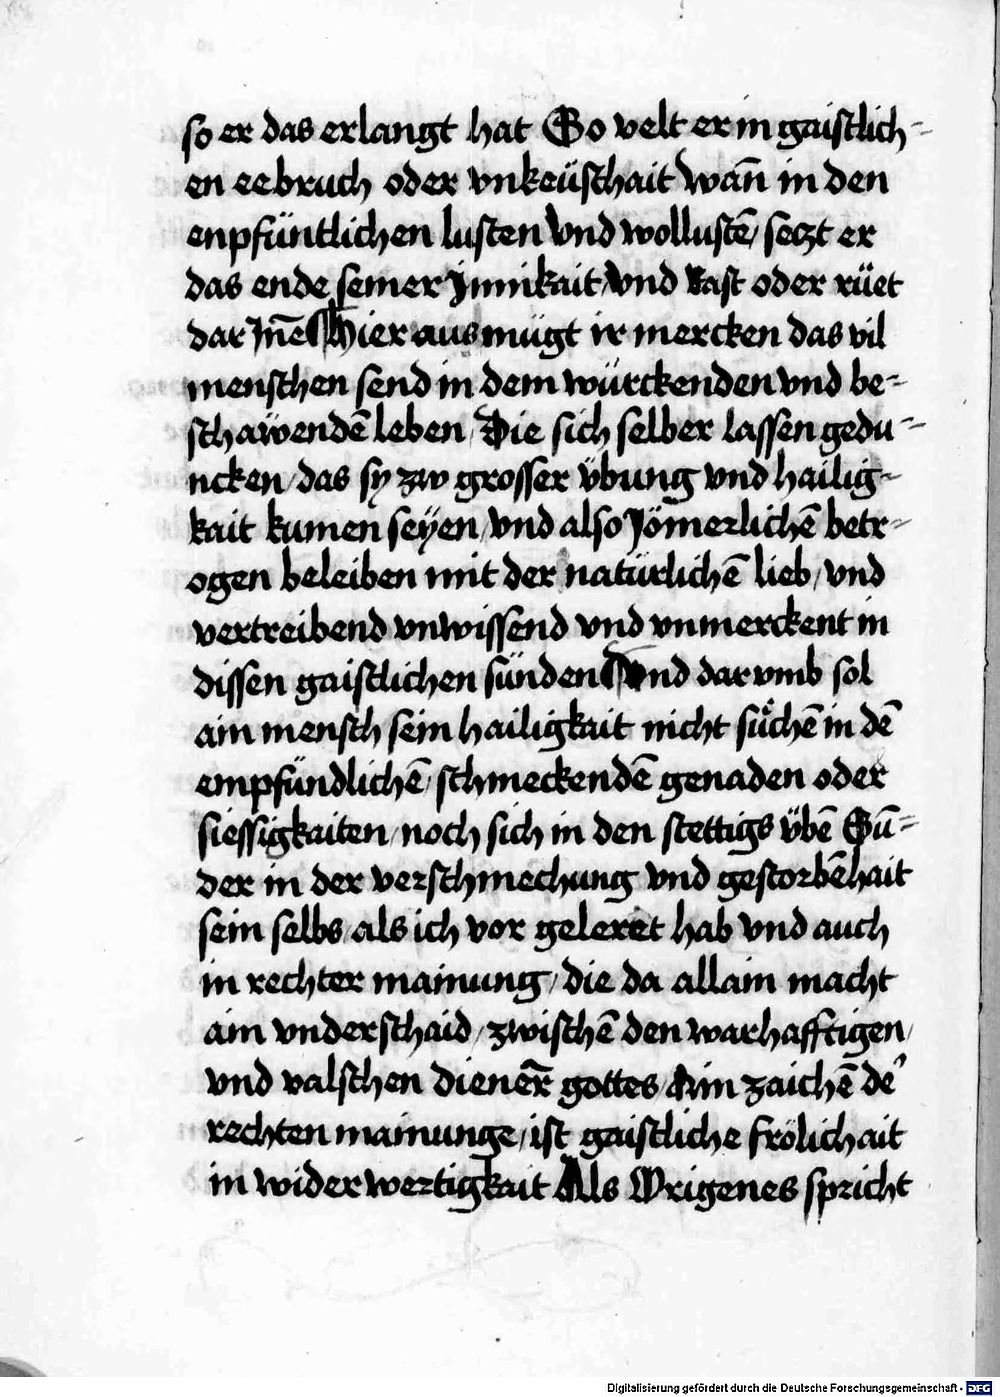 so er das erlangt hat So velt er in gaistlich-
en eebruch oder vnkeüschait wan̄ in den
enpfüntlichen lusten vnd wollustē / seczt er
das ende seiner Innikait / vnd Rast oder rüet
dar Inē Hier aus mügt ir mercken das vil
menschen send in dem würckenden vnd be-
schawendē leben / Die sich selber lassen gedu-
ncken / das sy zw grosser übung vnd hailig-
kait kumen seyen / vnd also Jömerlichē betr-
ogen beleiben mit der natürlichē lieb / vnd
vertreibend vnwissend vnd vnmerckent in
dissen gaistlichen sünden Vnd darvmb sol
ain mensch sein hailigkait nicht sůchē in dē
empfündlichē / schmeckendē genaden oder
siessigkaiten / noch sich in den stettigs übē Sū-
der in der verschmechung vnd gestorbēhait
sein selbs als ich vor geleret hab vnd auch
in rechter mainung / die da allain macht
ain vnderschaid / zwischē den warhafftigen /
vnd valschen dienēr gottes / Ain zaichē de'
rechten mainunge / ist gaistliche frölichait
in widerwertigkait Als Origenes spricht
Digitalisierung gefördert durch die Deutsche Forschungsgemeinschaft - DFG